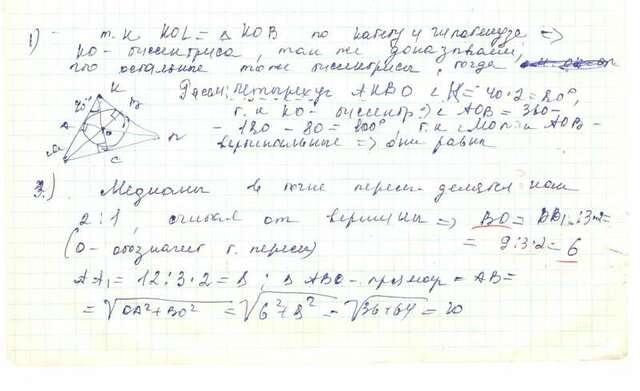 1) т. к KOL = △ KOB по катету и гипотенузе =>
KO - биссектриса, так же доказываем,
что остальные тоже биссектрисы, тогда
Рассм. четырехуг AKBO ∠K = 40·2 = 80°,
т. к KO - биссектр => ∠AOB = 360 -
- 180 - 80 = 100°, т. к ∠ MON и AOB -
вертикальные => они равны
K
40°
B
A
O
M
N
C
3.) Медианы в точке пересеч делятся как
2:1, считая от вершины => BO = BB₁:3·2 =
(O - обозначает т. пересеч) = 9:3·2 = 6
AA₁ = 12:3·2 = 8; △ ABO - прямоуг = AB =
= √OA²+BO² = √6²+8² = √36+64 = 10